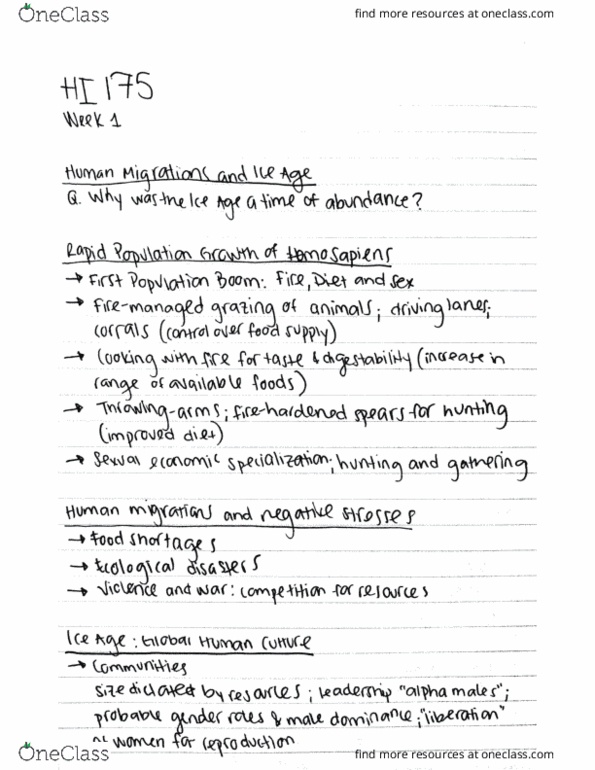 OneClass
find more resources at oneclass.com
HI 175
Week 1
Human Migrations and Ice Age
Q. Why was the Ice Age a time of abundance?
Rapid Population Growth of Homosapiens
→ First Population Boom: Fire, Diet and Sex
→ Fire-managed grazing of animals; driving lanes;
corrals (control over food supply)
→ Cooking with fire for taste & digestability (increase in
range of available foods)
→ Throwing-arms; fire-hardened spears for hunting
(improved diet)
→ Sexual economic specialization; hunting and gathering
Human migrations and negative stresses
→ Food shortages
→ Ecological disasters
→ Violence and war: competition for resources
Ice Age: Global Human Culture
→ Communities
size dictated by resources; leadership "alpha males";
probable gender roles & male dominance; "liberation"
women for reproduction
OneClass
find more resources at oneclass.com